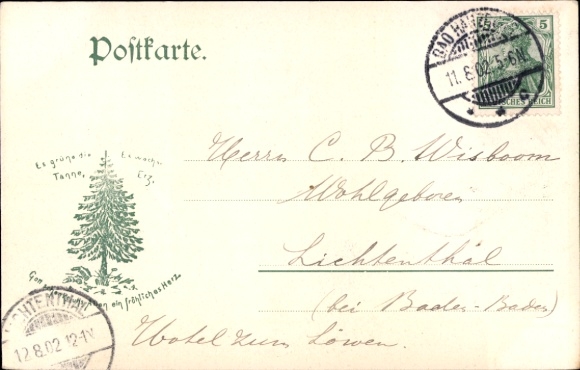 Postkarte.
BAD HARZBURG
11.8.02.5-6N.
c
5
DEUTSCHES REICH
Es grüne die Tanne,
Es wachse Erz.
Gott
ein fröhliches Herz
Herrn C. B. Wisboom
Wohlgeboren
Lichtenthāl
(bei Baden-Baden)
Hotel zum Löwen.
LICHTENTHAL
12.8.02.12-1N